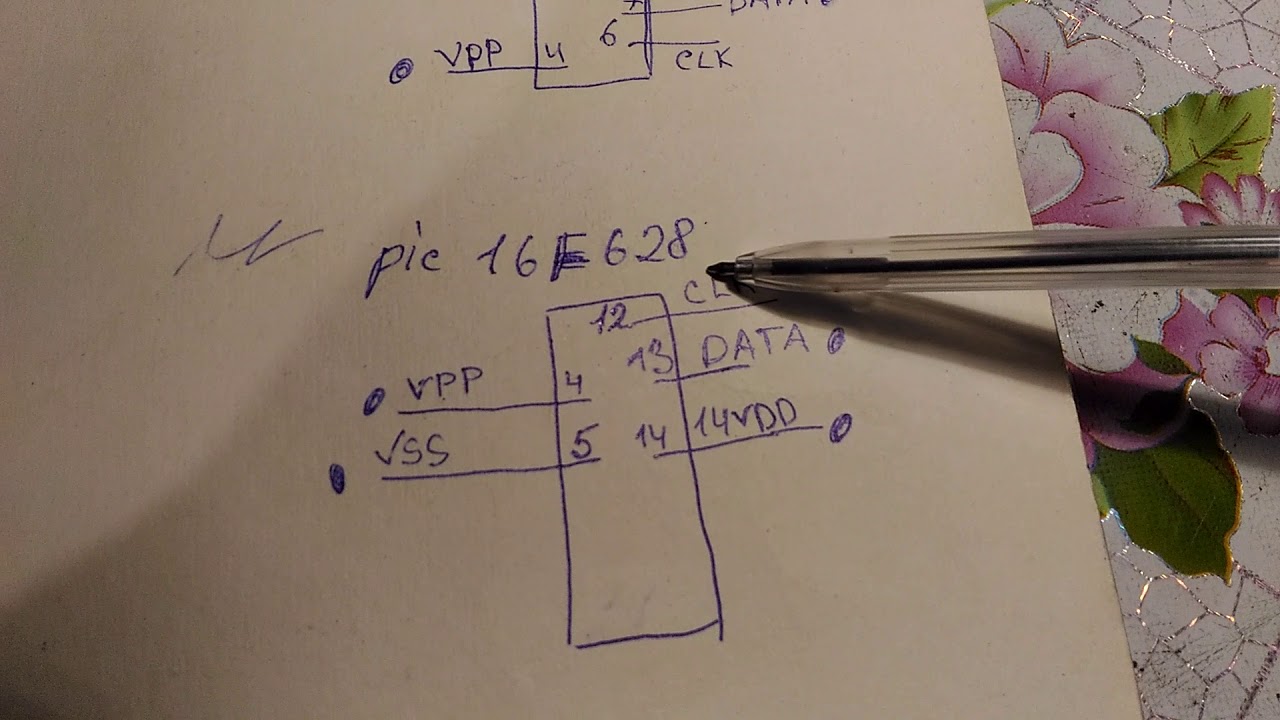 7 DATA
VPP 4 6 CLK
pic 16F628
12 CLK
13 DATA
VPP 4
VSS 5 14 14VDD